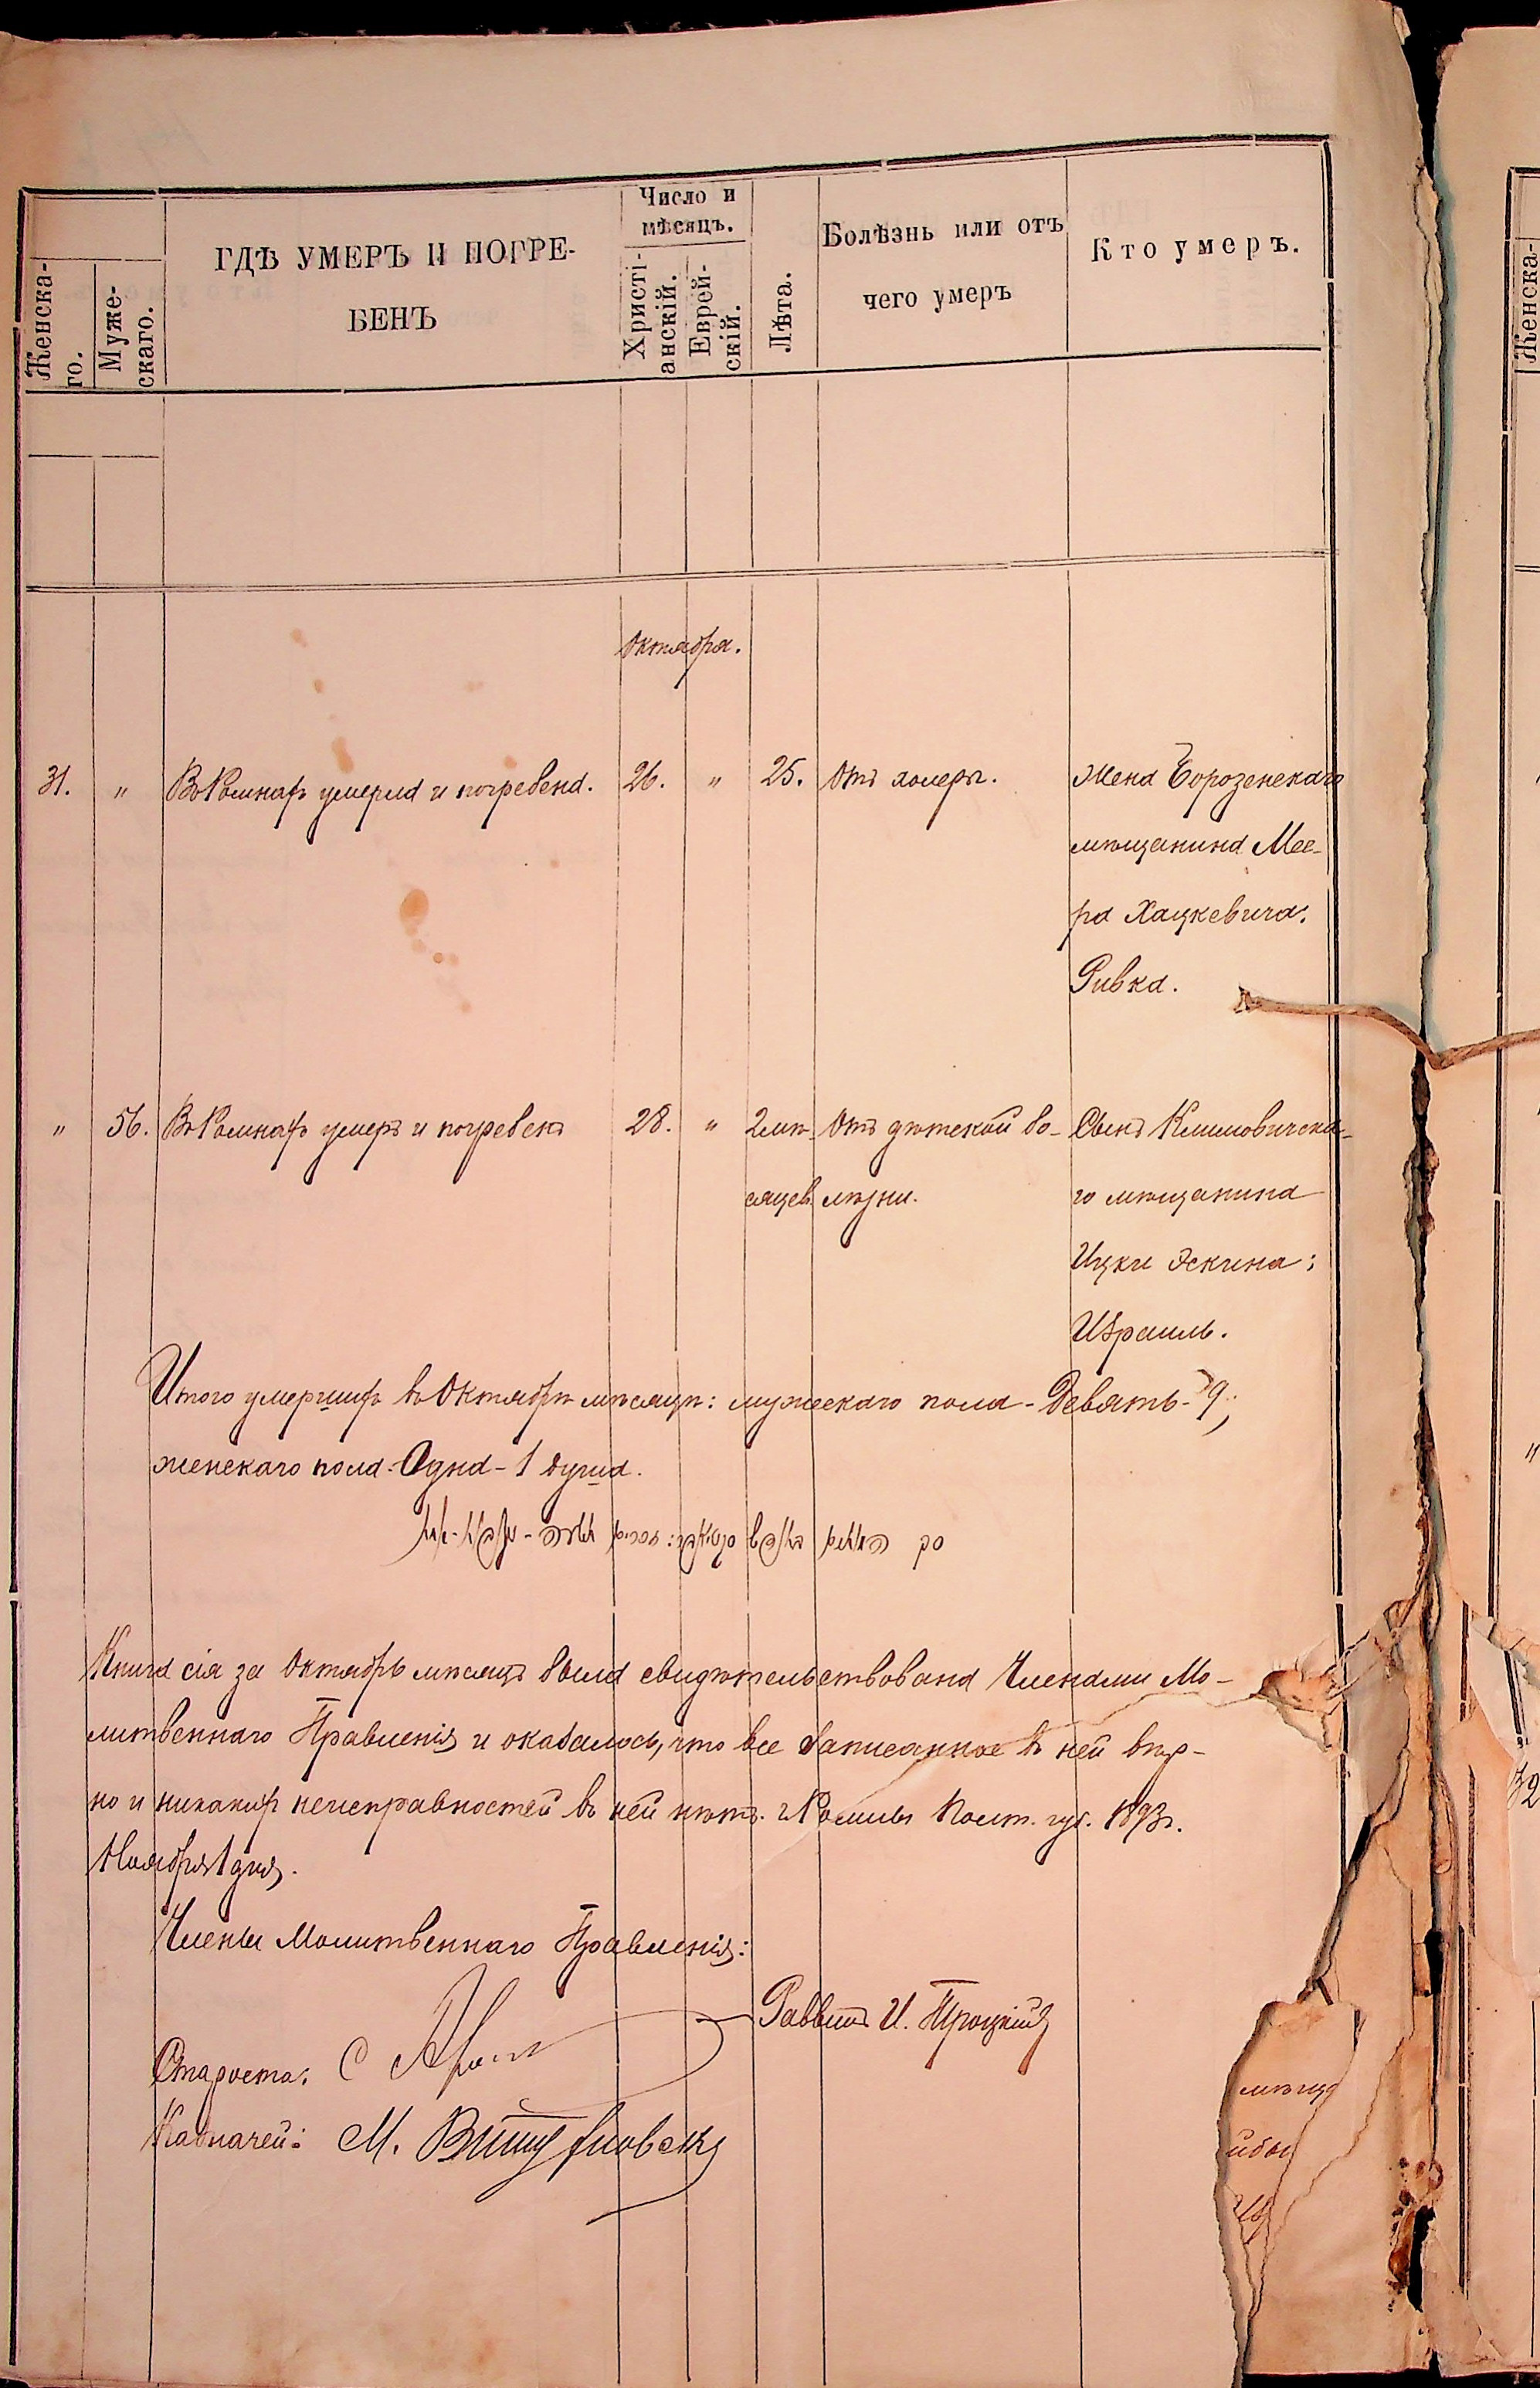 Число и
мѣсяцъ.
Женска-
го.
Муже-
скаго.
ГДѢ УМЕРЪ И ПОГРЕ-
БЕНЪ
Христі-
анскій.
Еврей-
скій.
Лѣта.
Болѣзнь или отъ
чего умеръ
Кто умеръ.
Октября.
31. " Въ Ромнахъ умерла и погребена. 26. " 25. Отъ холеры. Жена Борозенскаго
мѣщанина Мее-
ра Хацкевича.
Ривка.
" 56. Въ Ромнахъ умеръ и погребенъ 28. " 2 мѣ- Отъ дѣтской бо- Сынъ Климовичска-
сяцев. лѣзни. го мѣщанина
Ицки Эскина:
Израиль.
Итого умершихъ въ Октябрѣ мѣсяцѣ: мужескаго пола - Девять - 9;
женскаго пола - Одна - 1 душа.
Книга сія за Октябрь мѣсяцъ была свидѣтельствована Членами Мо-
литвеннаго Правленія и оказалось, что все записанное въ ней вѣр-
но и никакихъ неисправностей въ ней нѣтъ. г. Ромны Полт. губ. 1893 г.
Ноября 1 дня.
Члены Молитвеннаго Правленія:
Раввинъ И. Троцкій
Староста: С
Казначей: М.
Женска-